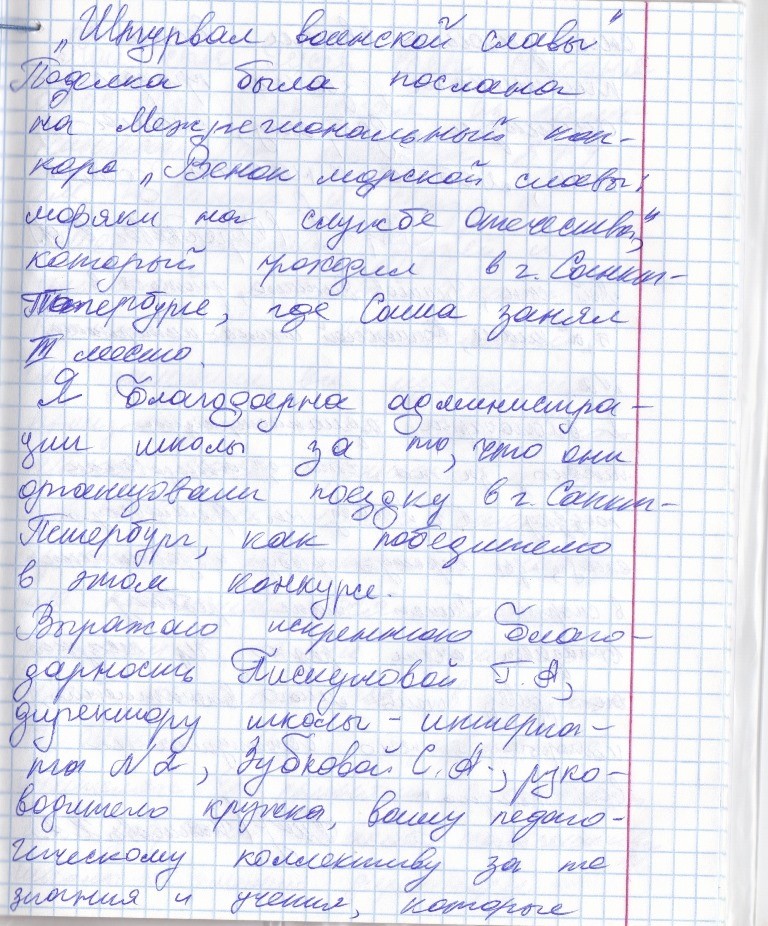 „Штурвал воинской славы"
Поделка была послана
на Межрегиональный кон-
корс „Венок морской славы:
моряки на службе Отечества",
который проходил в г. Санкт-
Петербурге, где Саша занял
III место.
Я благодарна администра-
ции школы за то, что они
организовали поездку в г. Санкт-
Петербург, как победителю
в этом конкурсе.
Выражаю искреннюю благо-
дарность Пискуновой Г.А,
директору школы - интерна-
та №2, Зубковой С.А., руко-
водителю кружка, вашу педаго-
гическому коллективу за те
знания и учения, которые